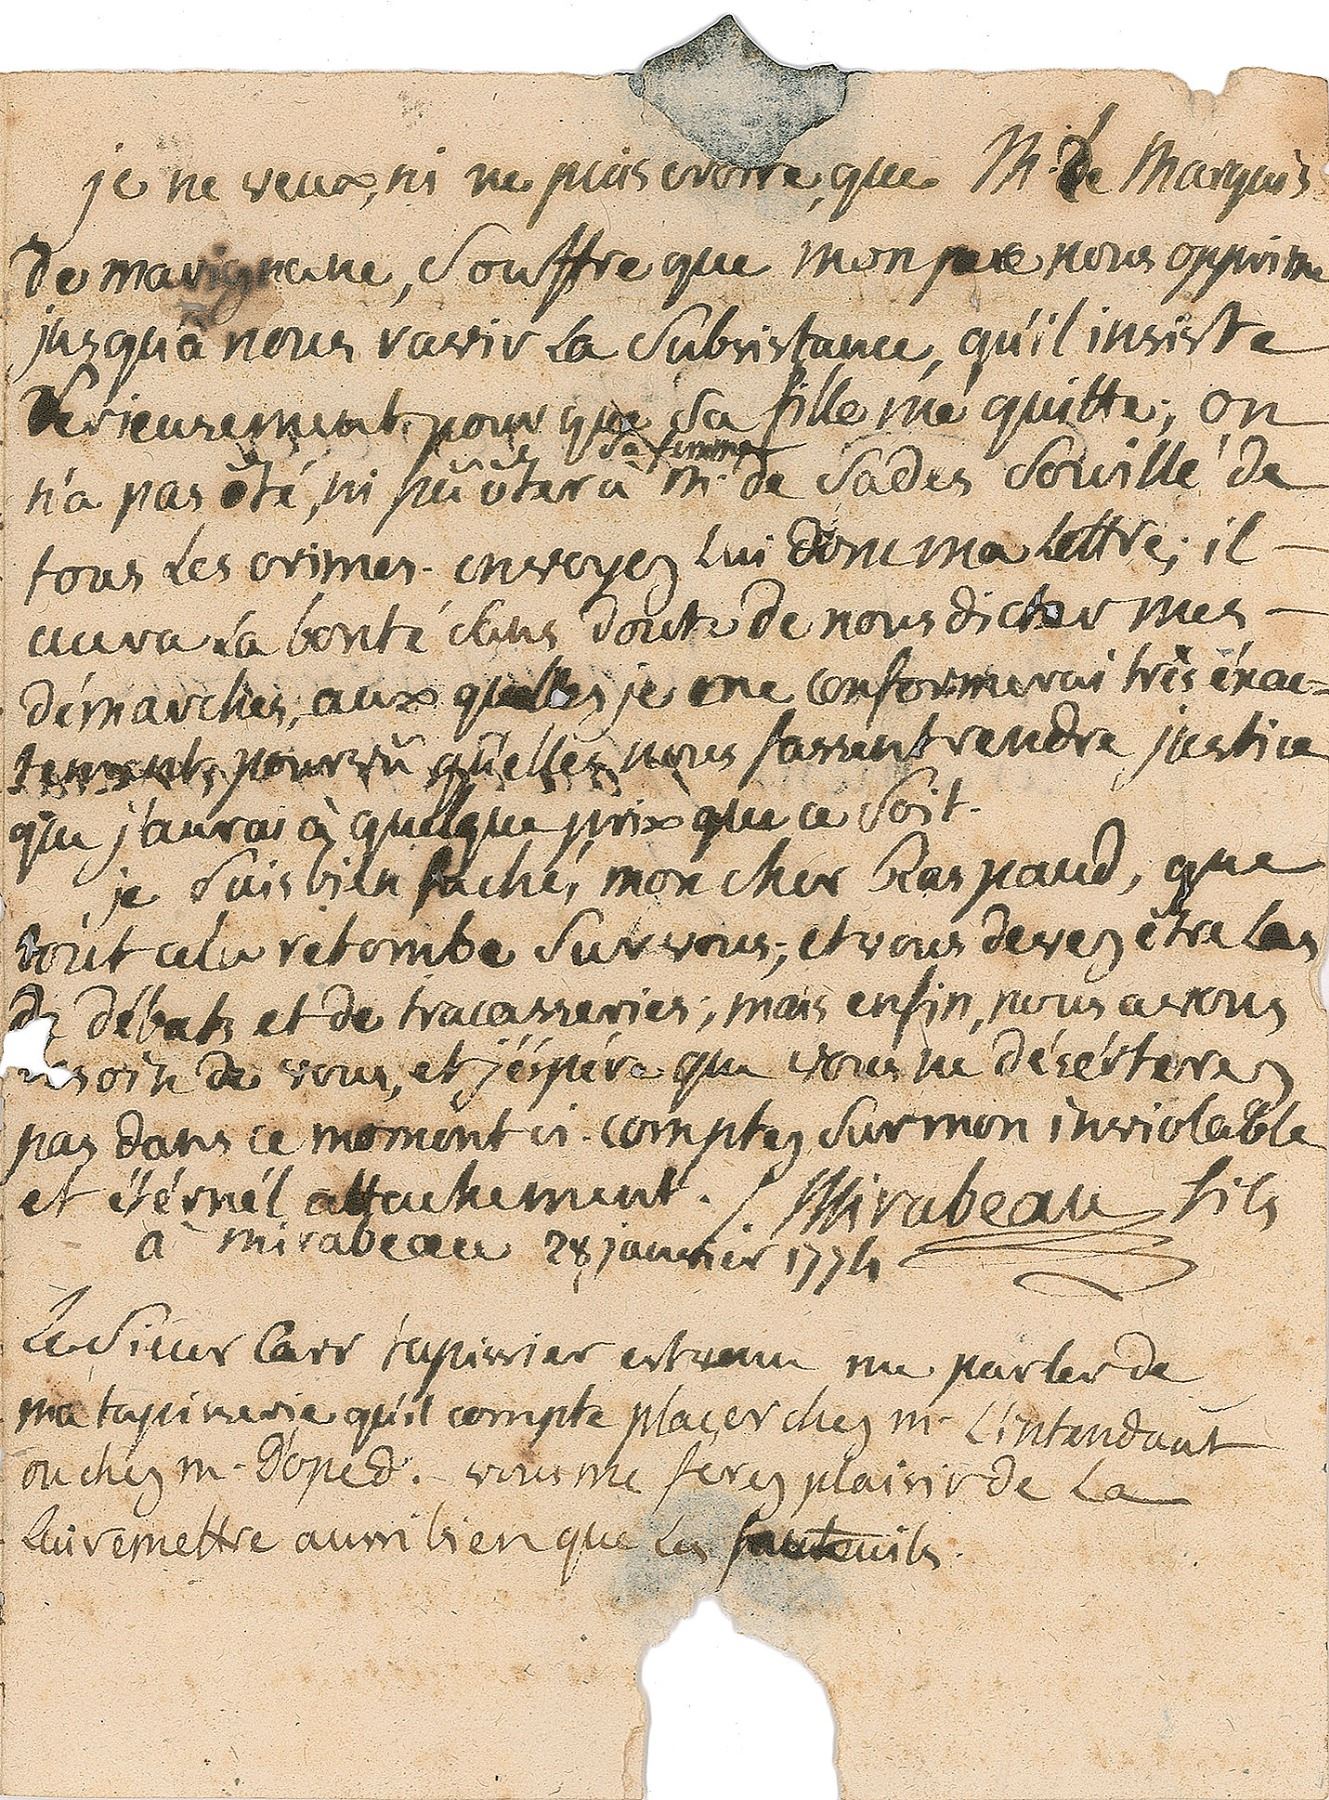 je ne veux, ni ne puis croire, que M. le Marquis
de marignane, souffre que mon pere nous opprime
jusqu'à nous ravir la subsistance, qu'il insiste
serieusement pour que sa fille me quitte; on
sa femme
n'a pas ôté, ni pû ôter à m. de Sades souillé de
tous les crimes. envoyez lui donc ma lettre; il
aura la bonté sans doute de nous dicter mes
démarches, aux quelles je me conformerai très éxac-
tement, pourvû qu'elles nous fassent rendre justice
que j'aurai à quelque prix que ce soit.
je suis bien faché, mon cher Raspaud, que
tout cela retombe sur vous; et vous devez être las
de débats et de tracasseries; mais enfin, nous avons
besoin de vous, et j'éspére que vous ne désérterez
pas dans ce moment ci. comptez sur mon inviolable
et étérnél attachement. Mirabeau fils
à mirabeau 28 janvier 1774
Le sieur Carr tapissier est venu me parler de
ma tapisserie qu'il compte plaçer chez m. L'intendant
ou chez m. D'oped. vous me ferez plaisir de la
lui remettre aussi bien que les fauteuils.